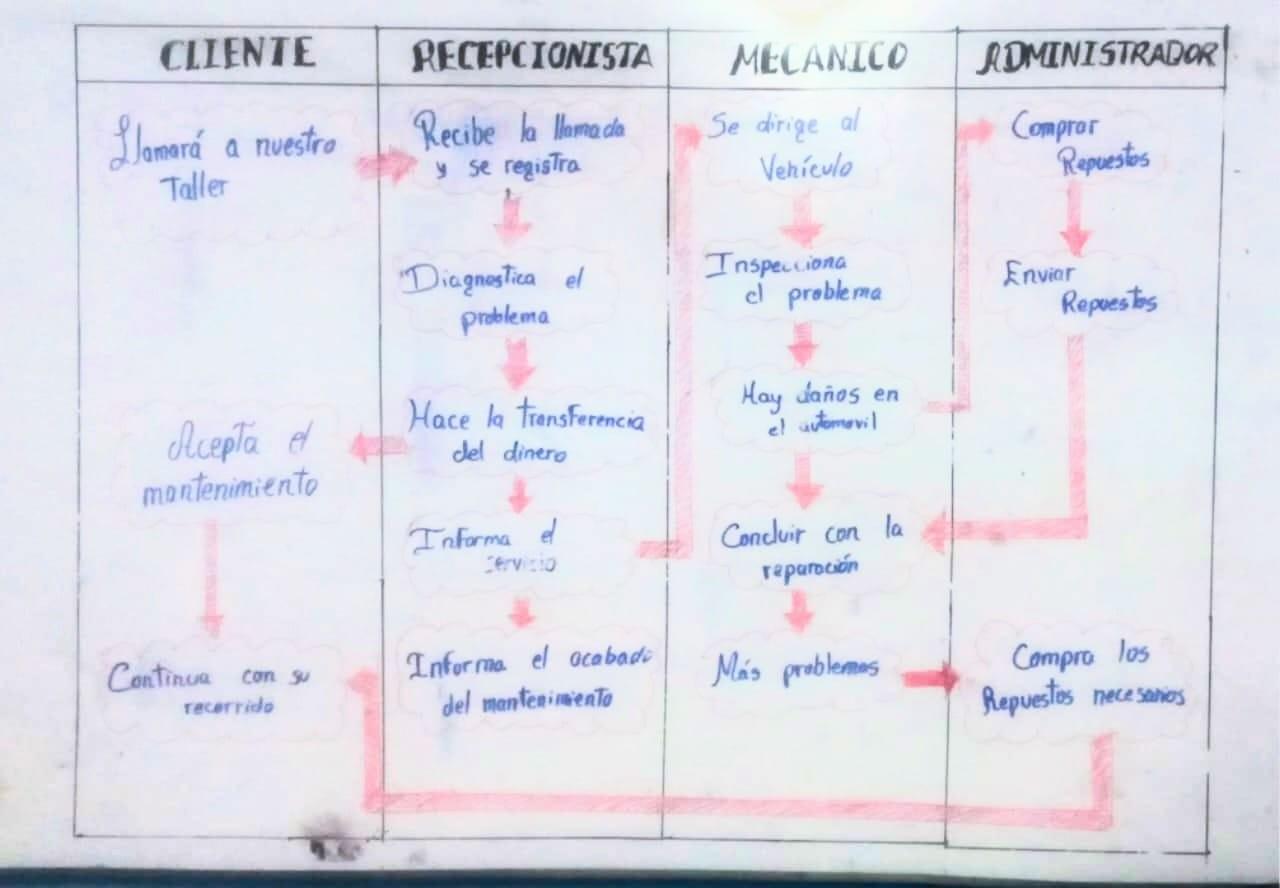 CLIENTE
RECEPCIONISTA
MECANICO
ADMINISTRADOR
Llamará a nuestro
Taller
Acepta el
mantenimiento
Continua con su
recorrido
Recibe la llamada
y se registra
Diagnostica el
problema
Hace la transferencia
del dinero
Informa el
servicio
Informa el acabado
del mantenimiento
Se dirige al
Vehículo
Inspecciona
el problema
Hay daños en
el automovil
Concluir con la
reparación
Más problemas
Comprar
Repuestos
Enviar
Repuestos
Compra los
Repuestos necesarios